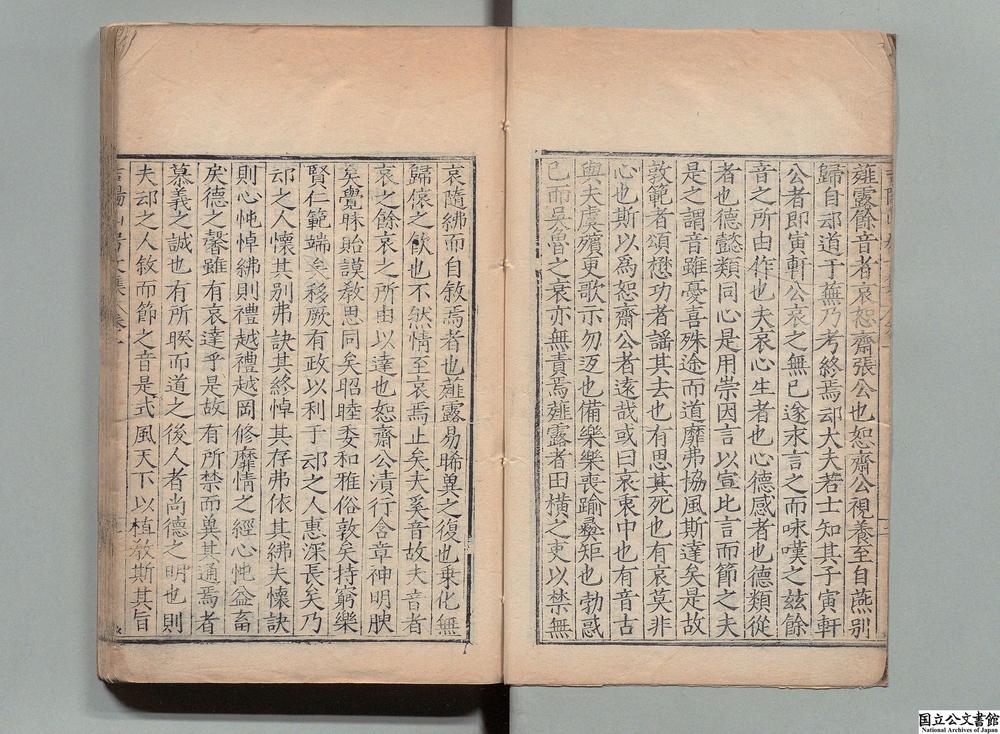 薤露餘音者哀恕齋張公也恕齋公視養至自燕別
歸自䢴道于蕪乃考終焉䢴大夫若士知其子寅軒
公者即寅軒公哀之無已遂求言之而咏嘆之玆餘
音之所由作也夫哀心生者也心德感者也德類從
者也德懿類同心是用崇因言以宣比言而節之夫
是之謂音雖憂喜殊途而道靡弗協風斯達矣是故
敦範者頌懋功者謡其去也有思其死也有哀莫非
心也斯以爲恕齋公者遠哉或曰哀衷中也有音古
與夫虞殯更歌示勿迓也備樂樂喪踰彝矩也勃惑
已而吳魯之哀亦無責焉薤露者田橫之東以禁無
哀隨紼而自敘焉者也薤露易晞冀之復也乗化無
歸儐之欲也不然情至哀焉止矣夫奚音故夫音者
哀之餘哀之所由以達也恕齋公漬行含章神明腴
矣黌昧貽謨教思同矣昭睦委和雅俗敦矣持窮樂
賢仁範端矣移厥有政以利于䢴之人惠深長矣乃
䢴之人懷其別弗訣其終悼其存弗依其紼夫懷訣
則心忳悼紼則禮越禮越罔修靡情之經心忳益畜
矣德之馨雖有哀達乎是故有所禁而冀其通焉者
慕義之誠也有所睽而道之後人者尚德之明也則
夫䢴之人敘而節之音是式風天下以植教斯其旨
国立公文書館
National Archives of Japan